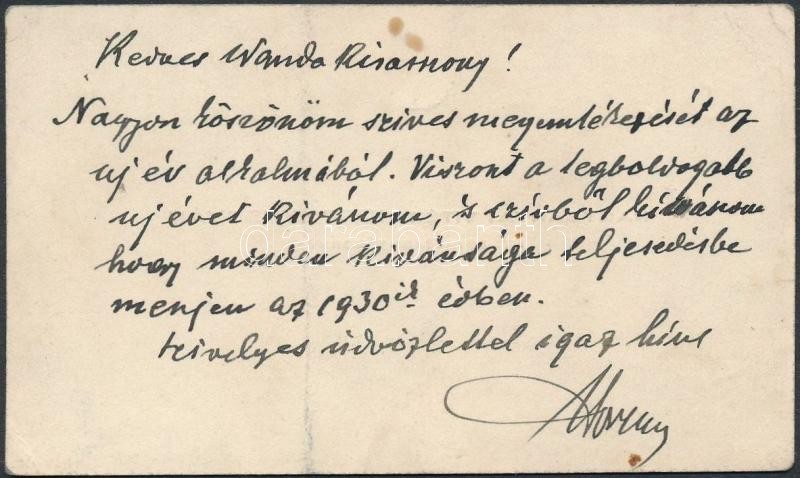 Kedves Wanda Kisasszony!
Nagyon köszönöm szives megemlékezését az
uj év alkalmából. Viszont a legboldogabb
uj évet kivánom, és szivből kivánom
hogy minden kivánsága teljesedésbe
menjen az 1930ik évben.
szivélyes üdvözlettel igaz hive